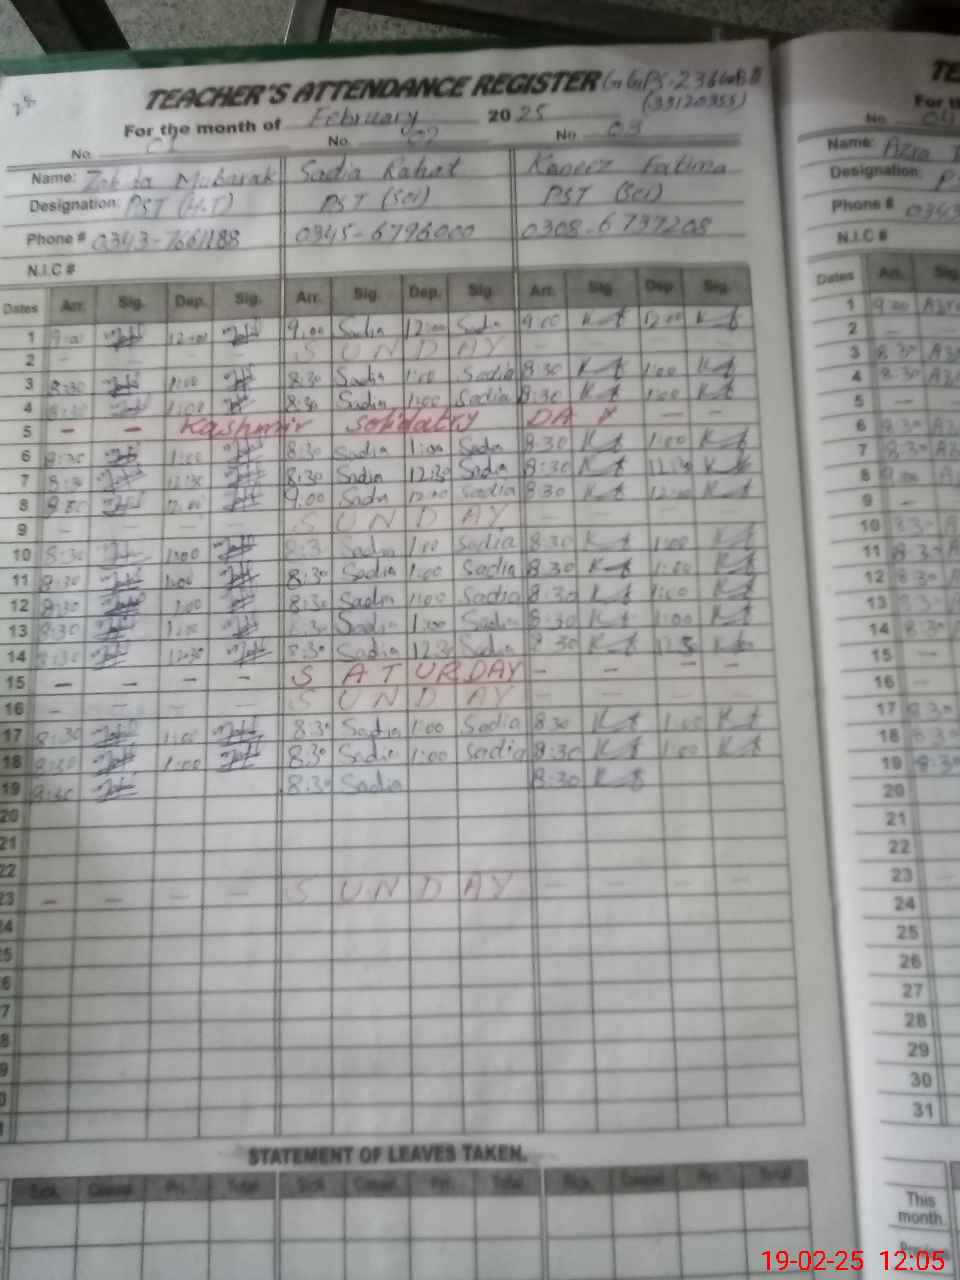 28
TEACHER'S ATTENDANCE REGISTER GGPS-236GB II
(33120355)
For the month of February 2025
No. 01 No. 02 No. 03
Name: Zahida Mubarak Sadia Rahat Kaneez Fatima
Designation: PST (H.T) PST (Sci) PST (Sci)
Phone # 0343-7661188 0345-6796000 0308-6737208
N.I.C #
Dates Arr. Sig. Dep. Sig. Arr. Sig. Dep. Sig. Arr. Sig. Dep. Sig.
1 9:00 12:00 9.00 Sadia 12:00 Sadia 9:00 Kf 12:00 Kf
2 — — — — S U N D A Y — — — —
3 8:30 1:00 8:30 Sadia 1:00 Sadia 8:30 Kf 1:00 Kf
4 8:30 1:00 8:30 Sadia 1:00 Sadia 8:30 Kf 1:00 Kf
5 — — Kashmir Solidatry DAY — —
6 8:30 1:00 8:30 Sadia 1:00 Sadia 8:30 Kf 1:00 Kf
7 8:30 12:30 8:30 Sadia 12:30 Sadia 8:30 Kf 12:30 Kf
8 12:00 9.00 Sadia 12:00 Sadia 8:30 Kf 12:00 Kf
9 — — — — S U N D A Y — — — —
10 8:30 1:00 8:3 Sadia 1:00 Sadia 8:30 Kf 1:00 Kf
11 8:30 1:00 8:30 Sadia 1:00 Sadia 8:30 Kf 1:00 Kf
12 8:30 1:00 8:30 Sadia 1:00 Sadia 8:30 Kf 1:00 Kf
13 8:30 1:00 8:30 Sadia 1:00 Sadia 8:30 Kf 1:00 Kf
14 8:30 12:30 8:30 Sadia 12:30 Sadia 8:30 Kf Kf
15 — — — — S A T U R D A Y — — — —
16 — — — — S U N D A Y — — — —
17 8:30 1:00 8:30 Sadia 1:00 Sadia 8:30 Kf 1:00 Kf
18 8:30 1:00 8:30 Sadia 1:00 Sadia 8:30 Kf 1:00 Kf
19 8:30 8:30 Sadia 8:30 Kf
20
21
22
23 — — — — S U N D A Y — — — —
24
5
6
7
8
9
0
1
STATEMENT OF LEAVES TAKEN.
Sick Casual Pri. Total Sick Casual Pri. Total Sick Casual Pri. Total
TE
For th
No. 04
Name:
Designation: P
Phone # 0343
N.I.C #
Dates Arr. Sig
1 9:00
2 —
3 8:30
4 8:30
5 —
6 8:30
7 8:30
8 9:00
9 —
10 8:30
11 8:30
12 8:30
13 8:30
14 8:30
15 —
16 —
17 8:30
18 8:30
19 8:30
20
21
22
23 —
24
25
26
27
28
29
30
31
This
month.
19-02-25 12:05